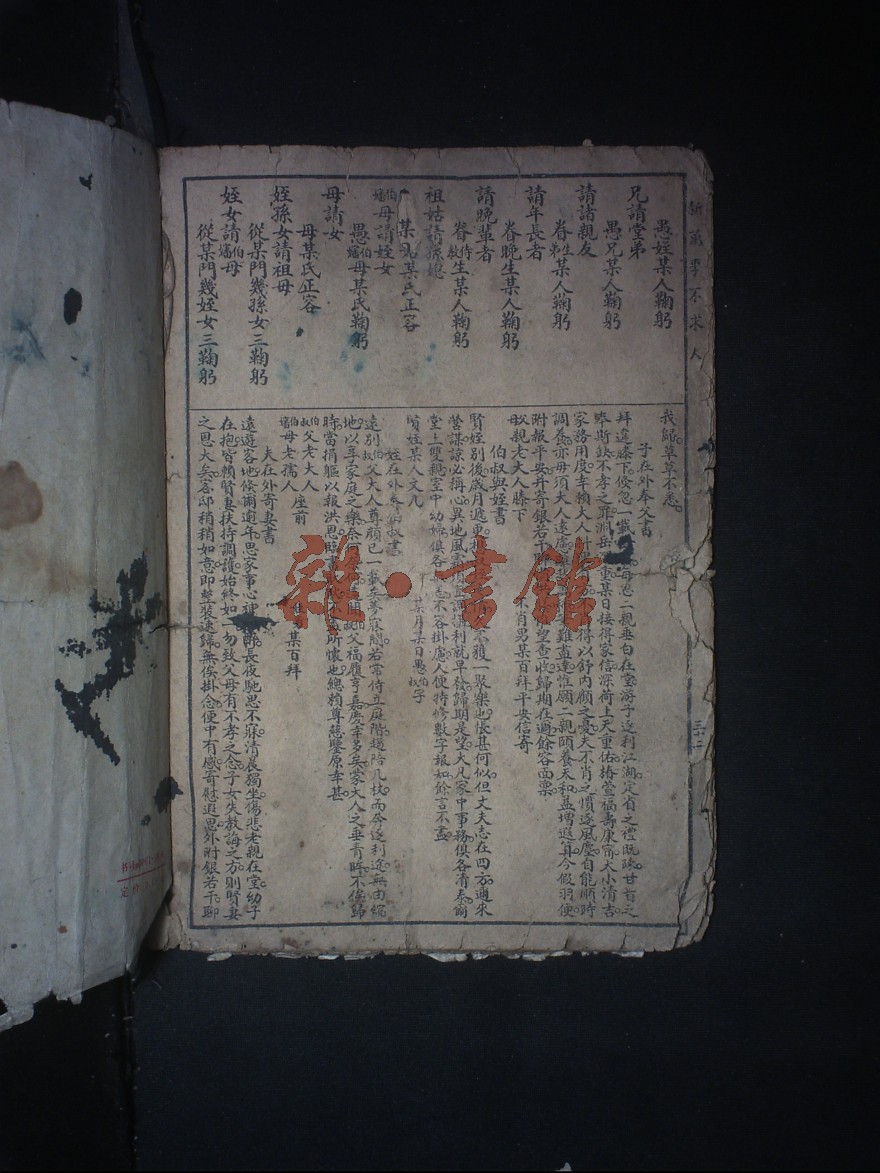 萬事不求人
愚姪某人鞠躬
兄請堂弟
愚兄某人鞠躬
請諸親友
眷生弟某人鞠躬
請年長者
眷晚生某人鞠躬
請晚輩者
眷侍教生某人鞠躬
祖姑請孫媳
某某氏正容
伯嬸母請姪女
愚伯嬸母某氏鞠躬
母請女
母某氏正容
姪孫女請祖母
從某門幾孫女三鞠躬
姪女請伯嬸母
從某門幾姪女三鞠躬
我歸草草不恙
子在外奉父書
拜違膝下倏忽一載 母恩二親垂白在堂游子逐利江湖定省之禮既疏甘旨之
奉斯缺不孝之罪淵岳 重某日接得家信深荷上天垂佑椿萱福壽康甯大小清吉
家務用度幸賴大人 得以舒內顧之憂夫不肖之慣逐風塵自能順時
調養亦毋須大人遠慮 難盡達惟願二親頤養天和益增遐算今假羽便
附報平安并寄銀若干 望查收歸期在邇餘容面稟
父母親老大人膝下 不肖男某百拜平安信寄
伯叔與姪書
賢姪別後歲月遞更 不獲一聚樂也悵甚何似但丈夫志在四方邇來
營謀諒必稱心異地風霜須 調攝利就早發歸期是望大凡家中事務俱各清泰爾
堂上雙親室中幼婦俱各 恙不容掛慮人便特修數字報知餘言不盡
賢姪某人文几 某月某日愚伯叔字
姪在外奉伯叔書
遠別伯叔父大人尊顏已一載矣夢寐間若常侍立庭階趨陪几杖而今逐利逆無由縮
地以享家庭之樂奈何 父福履亨嘉慶幸多矣蒙大人之垂青眸不俟歸
時當捐軀以報洪恩臨書 所懷也總賴尊慈鑒原幸甚
伯叔父老大人
伯嬸母老孺人 座前 某百拜
夫在外寄妻書
遠遊客地倏爾週年思家事心 長夜馳思不寐清晨獨坐傷悲老親在堂幼子
在抱皆賴賢妻扶持調護始終如一勿致父母有不孝之念子女失教誨之方則賢妻
之恩大矣客邸稍稍如意即整裝速歸無俟掛念便中有感寄慰遐思外附銀若干聊
雜·書館